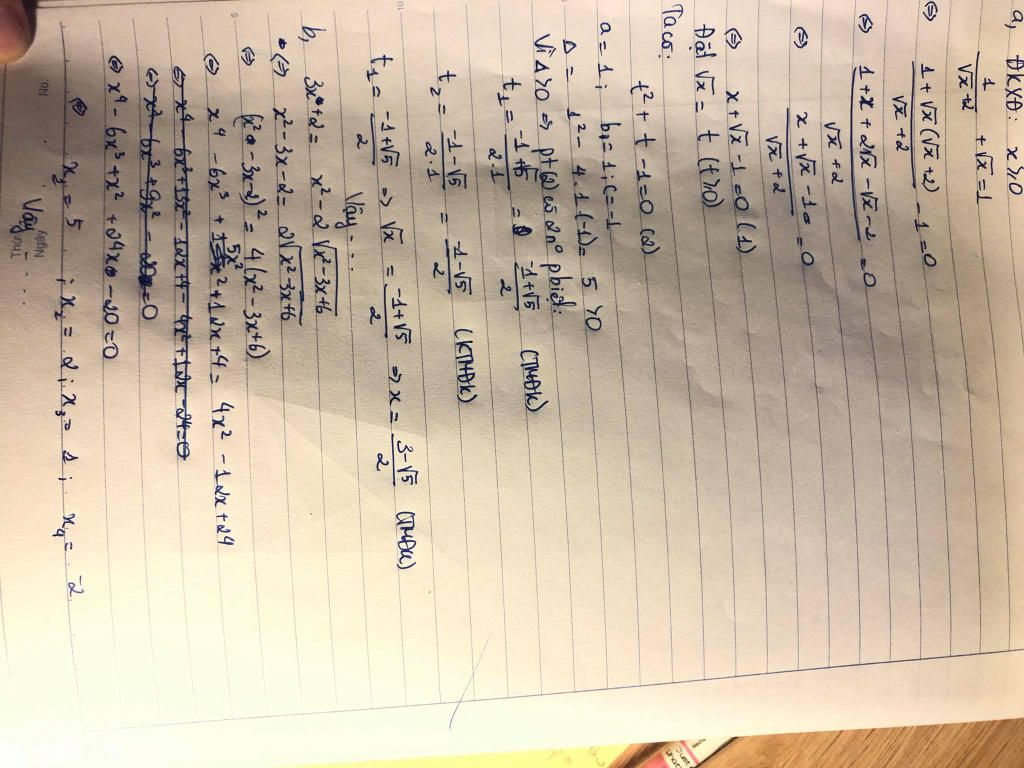 a, ĐKXĐ: x ≥ 0
1/(√x+2) + √x = 1
⇔ (1 + √x(√x+2))/(√x+2) - 1 = 0
⇔ (1 + x + 2√x - √x - 2)/(√x+2) = 0
⇔ (x + √x - 1)/(√x+2) = 0
⇔ x + √x - 1 = 0 (1)
Đặt √x = t (t≥0)
Ta có:
t² + t - 1 = 0 (2)
a = 1; b = 1; c = -1
Δ = 1² - 4.1(-1) = 5 > 0
Vì Δ > 0 ⇒ pt(2) có 2 n⁰ pbiệt:
t₁ = (-1+√5)/(2.1) = (-1+√5)/2 (TMĐK)
t₂ = (-1-√5)/(2.1) = (-1-√5)/2 (KTMĐK)
t₁ = (-1+√5)/2 ⇒ √x = (-1+√5)/2 ⇒ x = (3-√5)/2 (TMĐK)
Vậy ...
b, 3x+2 = x² - 2√(x²-3x+6)
⇔ x² - 3x - 2 = 2√(x²-3x+6)
⇔ (x² - 3x - 2)² = 4(x² - 3x + 6)
⇔ x⁴ - 6x³ + 5x² + 12x + 4 = 4x² - 12x + 24
⇔ x⁴ - 6x³ + x² + 24x - 20 = 0
⇔ x₁ = 5 ; x₂ = 2 ; x₃ = 1 ; x₄ = -2
Vậy ...